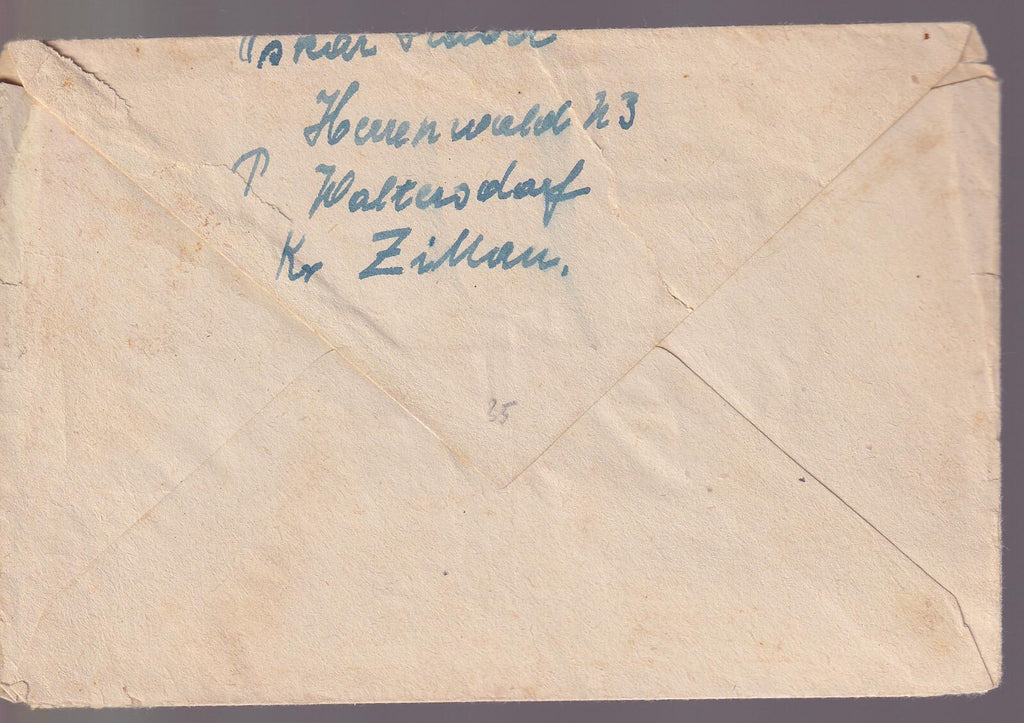 Oskar
Herrenwald 23
Waltersdorf
Kr Zittau.
35